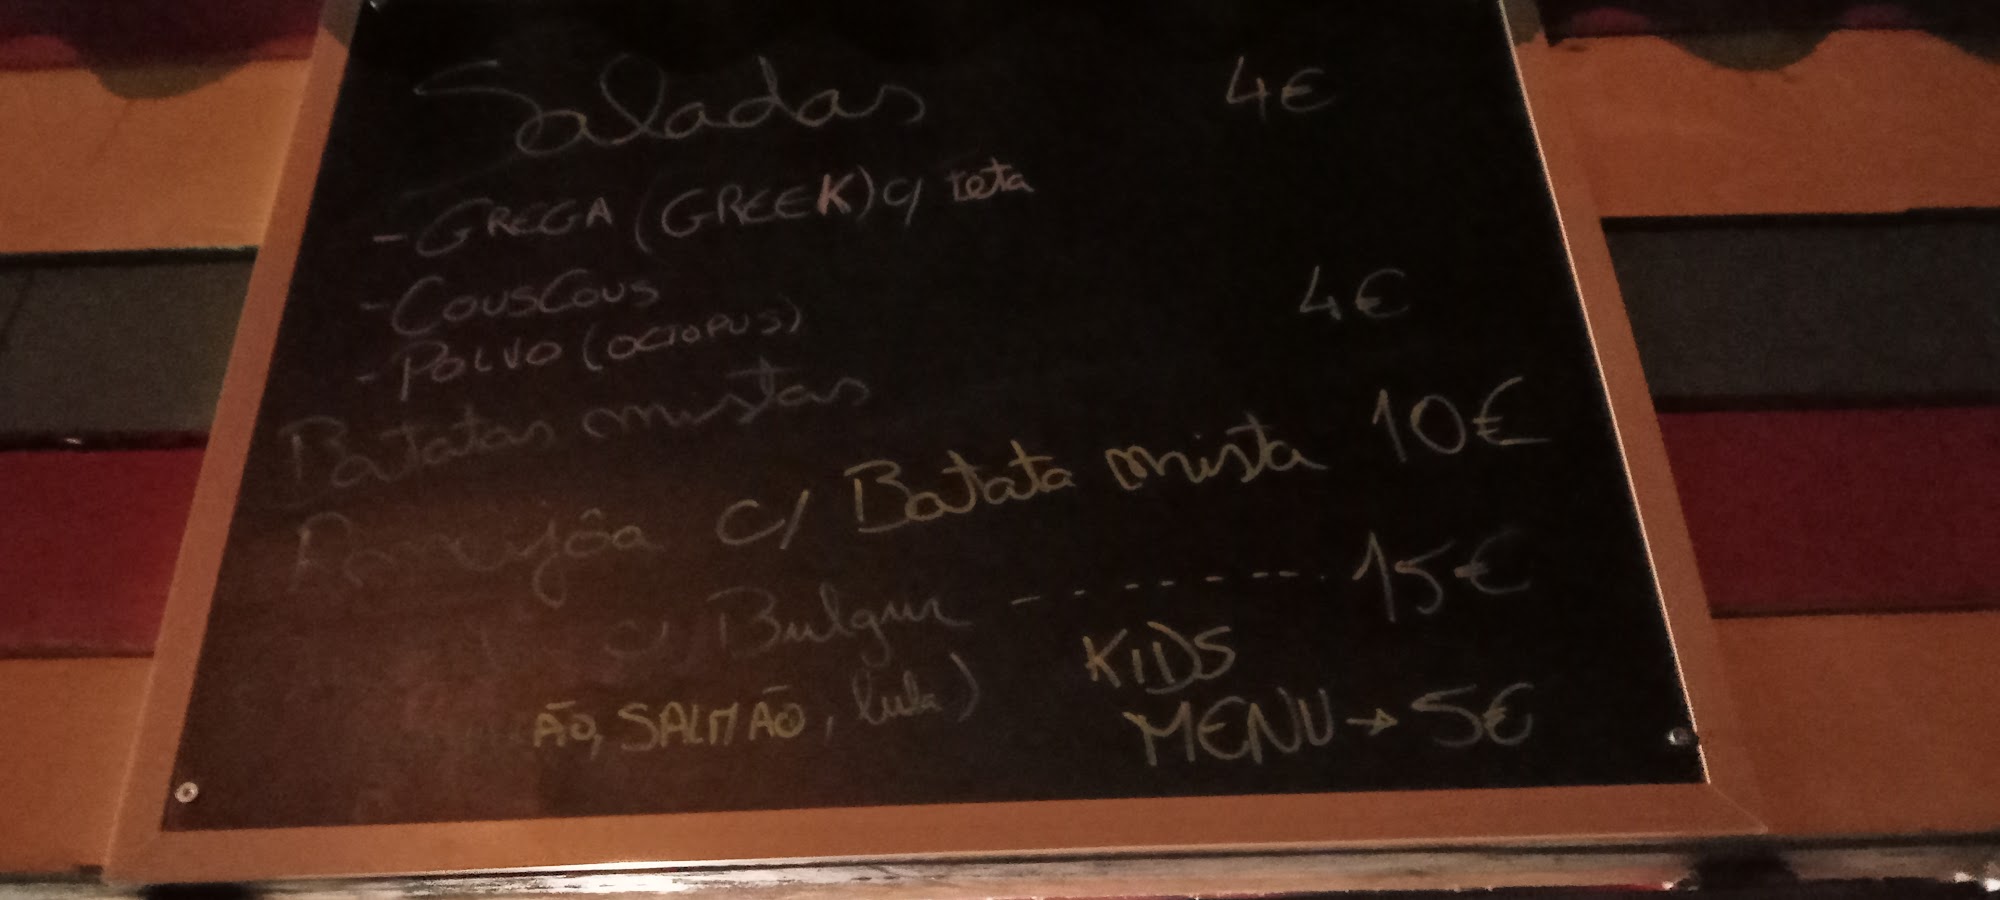 Saladas 4€
- GREGA (GREEK) c/ feta
- COUSCOUS
- POLVO (OCTOPUS)
Batatas mistas 4€
c/ Batata mista 10€
c/ Bulgur - - - - - - - 15€
ÃO, SALMÃO, lula)
KIDS
MENU → 5€